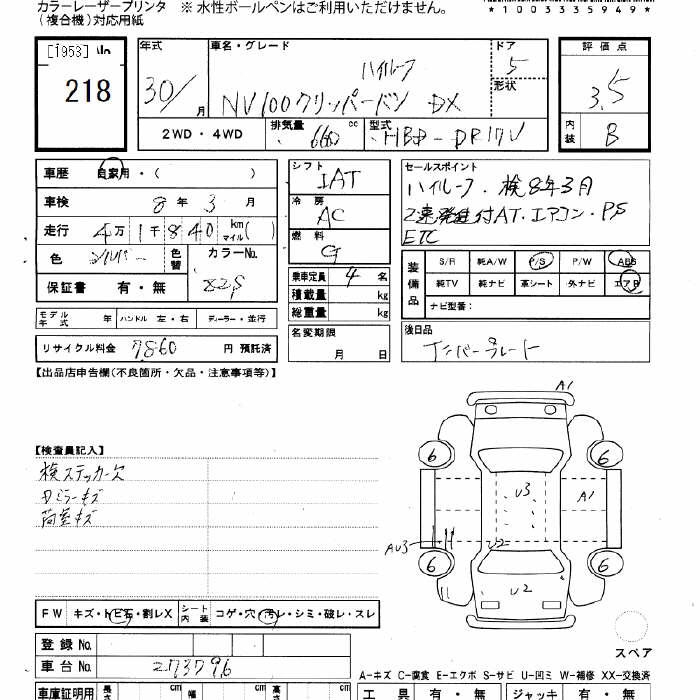 カラーレーザープリンタ ※ 水性ボールペンはご利用いただけません。
(複合機)対応用紙
*1003335949*
[1953]
218
年式 車名・グレード ドア 評価点
30/ 月 ハイルーフ 5 3.5
形状
NV100クリッパーバン DX
2WD・4WD 排気量 660 cc 型式 HBD-DR17V 内装 B
車歴 自家用・( )
車検 8年 3月
走行 4万1千840 km マイル( )
色 シルバー 色替 カラーNo. 82S
保証書 有・無
モデル年式 年 ハンドル 左・右 ディーラー・並行
リサイクル料金 7860 円 預託済
シフト
IAT
冷房
AC
燃料
G
乗車定員 4 名
積載量 kg
総重量 kg
名変期限
月 日
セールスポイント
ハイルーフ・検8年3月
2速発進付AT.エアコン・PS
ETC
装備品 S/R 純A/W P/S P/W ABS
純TV 純ナビ 革シート 外ナビ エアB
ナビ型番:
後日品
ナンバープレート
【出品店申告欄(不良箇所・欠品・注意事項等)】
【検査員記入】
検ステッカー欠
Rミラーキズ
荷室キズ
A1
6 6
U3 A1
AU3 U2
6 6
U2
スペア
FW キズ・トビ石・割レX シート内装 コゲ・穴・汚レ・シミ・破レ・スレ
登録No.
車台No. 273796
A-キズ C-腐食 E-エクボ S-サビ U-凹ミ W-補修 XX-交換済
車庫証明用 長さ cm 幅 cm 高さ cm 工具 有・無 ジャッキ 有・無